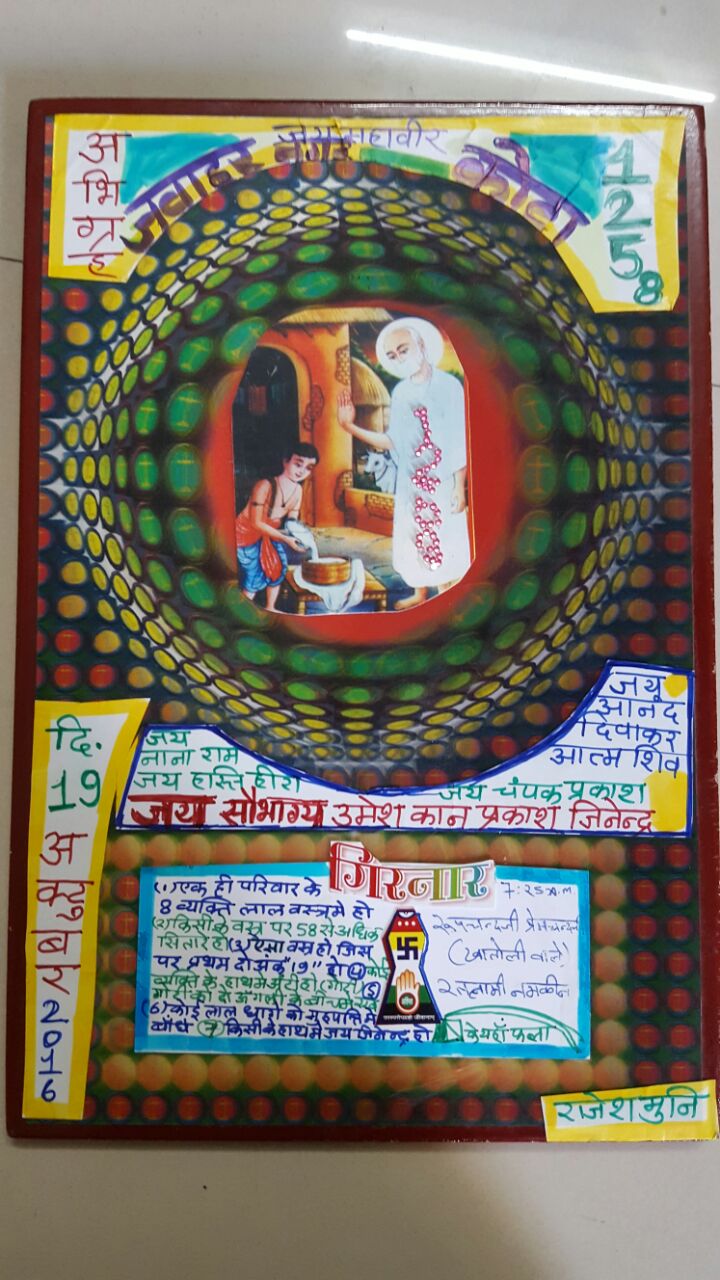 जय महावीर
अभिग्रह
जवाहर नगर कोटा
1258
जय
आनंद
दिवाकर
आत्म शिव
जय
नाना राम
जय हस्ति हीरा
जय चंपक प्रकाश
जय सौभाग्य उमेश कान प्रकाश जिनेन्द्र
दि.
19
अक्टूबर
2016
गिरनार
7:25 A.M
(1) एक ही परिवार के
8 व्यक्ति लाल वस्त्र मे हो
(2) किसी के वस्त्र पर 58 से अधिक
सितारे हो (3) ऐसा वस्त्र हो जिस
पर प्रथम दो अंक "19" हो (4) कोई
व्यक्ति के हाथ मे
(5)
(6) कोई लाल धागे को मुहपत्ति मे
बाँधे (7) किसी के हाथ मे जय जिनेन्द्र हो
रूपचन्दजी प्रेमचन्दजी
(खातोली वाले)
रतलामी नमकीन
के यहाँ फला
परस्परोपग्रहो जीवानाम्
राजेश मुनि